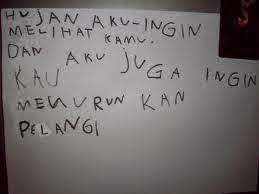 HUJAN AKU-INGIN
MELIHAT KAMU.
DAN AKU JUGA INGIN
KAU
MENURUN KAN
PELANGI